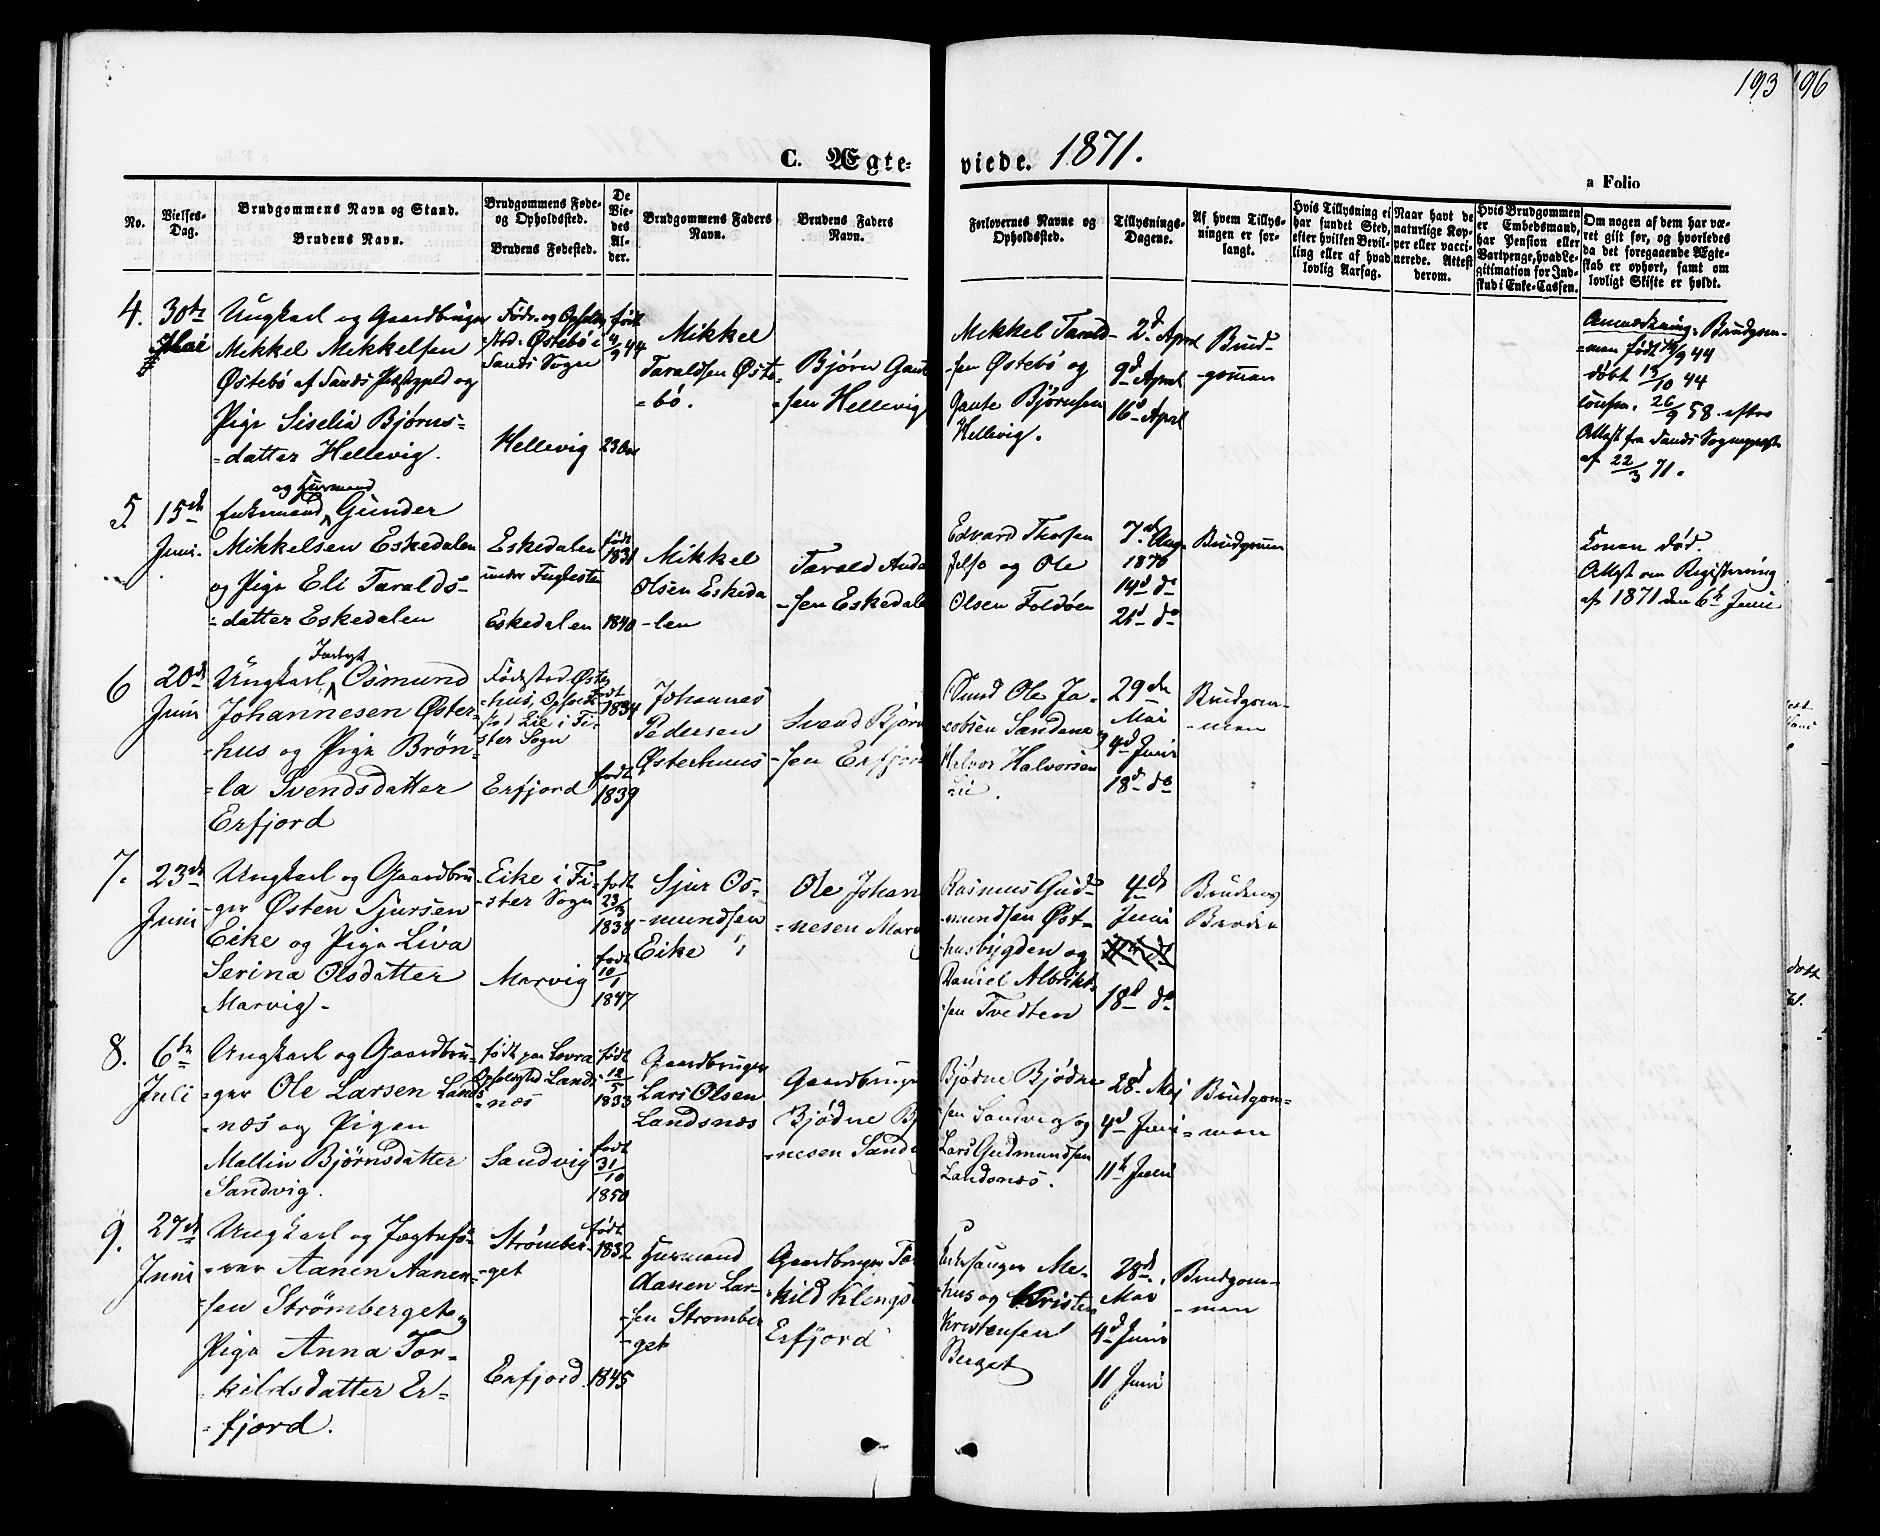 193 196
C. Ægte- viede. 1871.
a Folio
No.
Vielses-Dag.
Brudgommens Navn og Stand.
Brudens Navn.
Brudgommens Føde- og Opholdssted.
Brudens Fødested.
De Viedes Alder.
Brudgommens Faders Navn.
Brudens Faders Navn.
Forlovernes Navne og Opholdssted.
Tillysnings-Dagene.
Af hvem Tillysningen er forlangt.
Hvis Tillysning ei har fundet Sted, efter hvilken Bevilling eller af hvad lovlig Aarsag.
Naar havt de naturlige Kopper eller vaccinerede. Attest derom.
Hvis Brudgommen er Embedsmand, har Pension eller Vartpenge, hvad Legitimation for Indskud i Enke-Cassen.
Om nogen af dem har været gift før, og hvorledes da det foregaaende Ægteskab er ophørt, samt om lovligt Skifte er holdt.
4.
30te
Mai
Ungkarl og Gaardbruger
Mikkel Mikkelsen
Østebö af Sands Præstegjeld og
Pige Siselia Bjørns-
-datter Hellevig.
Føde- og Opholds-
-sted. Østebö i
Sands Sogn
Hellevig
født
9/9 44
23 Aar
Mikkel
Taraldsen Øste-
-bö.
Bjørn Gaut
-sen Hellevig
Mikkel Tarald-
-sen Østebö og
Gaute Bjørnsen
Hellevig.
2d April
9d April
16d April
Brud-
gommen
Anmærkning. Brudgom-
-men født 9/9 44
døbt 13/10 44
confir. 26/9 58 efter
Attest fra Sands Sognepræst
af 22/3 71.
5
15de
Juni.
Enkemand og Huusmand Gunder
Mikkelsen Eskedalen
og Pige Eli Taralds-
-datter Eskedalen
Eskedalen
under Fuglestein
Eskedalen
født
1831
1840
Mikkel
Olsen Eskeda
-len
Tarald Anda
-sen Eskedale
Edvard Thorsen
Jelse og Ole
Olsen Foldöen
7de Aug.
1870
14d do
21d do
Brudgommen
Konen død.
Attest om Registrering
af 1871 den 6te Juni
6
20de
Juni
Ungkarl, Inderst Osmund
Johannesen Øster-
-hus og Pige Brön-
-la Svendsdatter
Erfjord
Fødested Øster-
-hus, Opholds-
sted Lie i Fi-
ster Sogn
Erfjord
født
1834
født
1839
Johannes
Pedersen
Østerhuus
Svend Bjørn
-sen Erfjord
Amund Ole Ja-
cobsen Sandene
Helvor Halvorsen
Lie.
29de
Mai
4d Juni
18d do
Brudgom-
-men
7.
23de
Juni
Ungkarl og Gaardbru-
-ger Østen Sjursen
Eike og Pige Liva
Serina Olsdatter
Marvig.
Eike i Fi-
-ster Sogn
Marvig
født
født
10/1
1847
Sjur Os-
-mundsen
Eike
Ole Johan
-nesen Marv
Rasmus Gud-
mundsen Øst-
-husbygden og
Daniel Albrikt-
-sen Tvedten
4de
Juni
18d do
Brudens
Broder
8.
6te
Juli
Ungkarl og Gaardbru-
-ger Ole Larsen Lands
-næs og Pigen
Mallin Bjørnsdatter
Sandvig.
født paa Lovra
Opholdssted Lands-
-næs
Sandvig
født
12/5
1833
født
31/10
1850
Gaardbruger
Lars Olsen
Landsnæs
Gaardbruger
Bjødne Bj
-nesen Sandv
Bjødne Bjødne-
-sen Sandvig og
Lars Gudmundsen
Landsnæs.
28d Mai
4d Juni
11te Juni
Brudgom-
-men
9.
27de
Juni
Ungkarl og Jagtefö-
-rer Aanen Aanen-
-sen Strömberget og
Pige Anna Tor-
-kildsdatter Er-
-fjord.
Strömber-
-get
Erfjord
født
1832
1845
Huusmand
Aanen Lar-
-sen Strömber
-get
Gaardbruger Tor
-kild Klingsh
Erfjord
Kirkesanger Me-
-hus og Kristen
Kristensen
Berget
28de
Mai
4d Juni
11 Juni
Brudgom-
-men